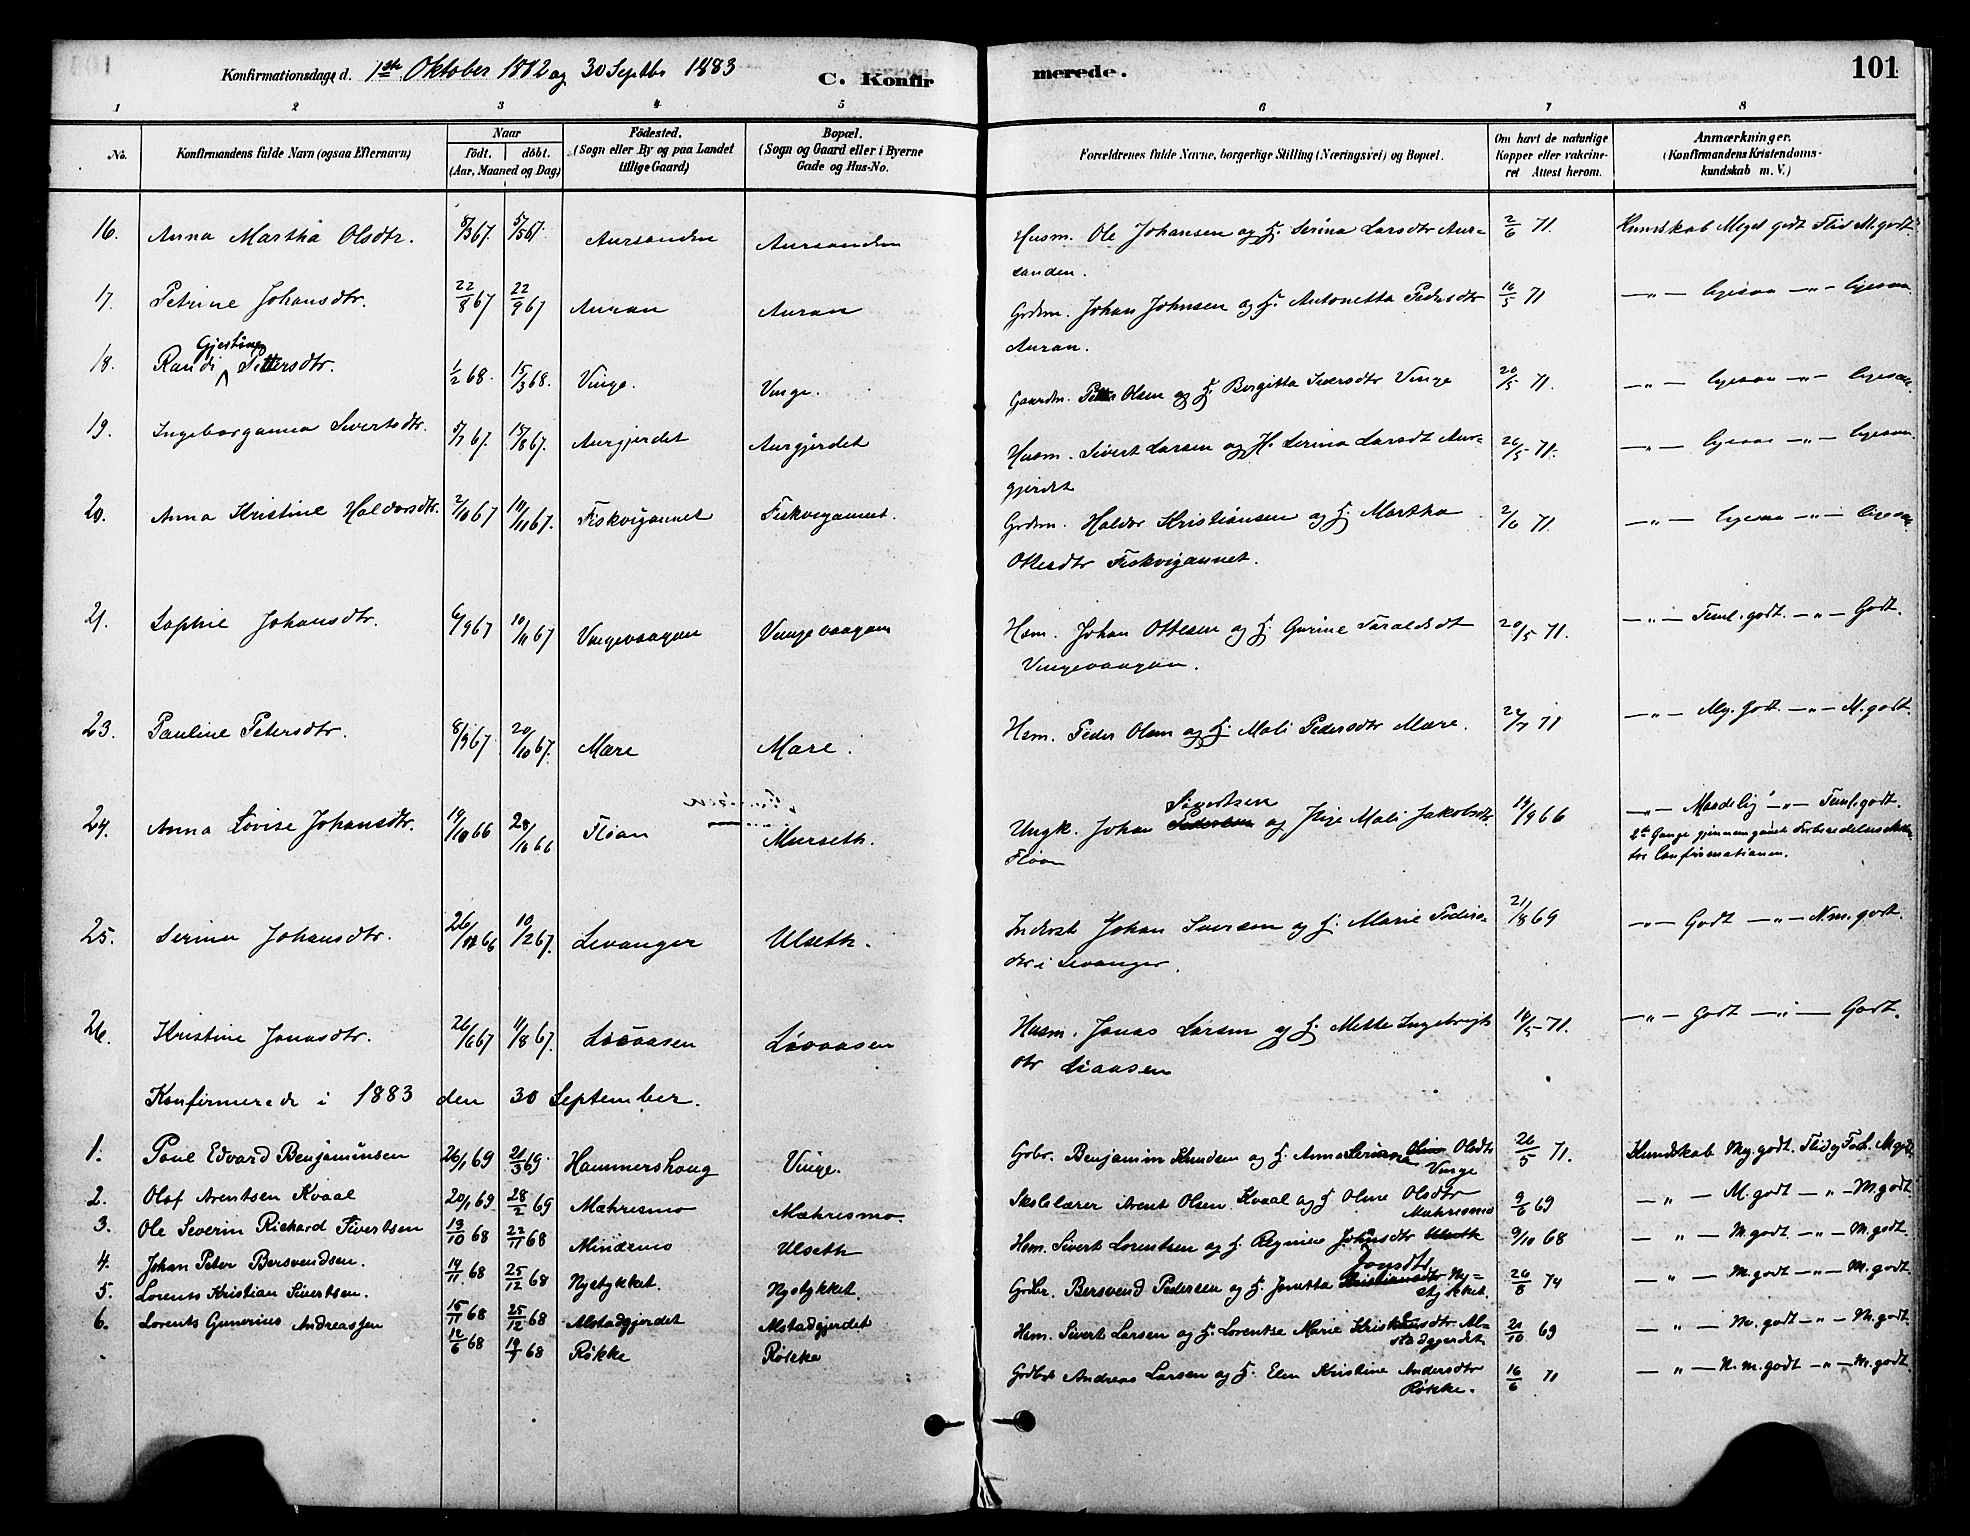 Konfirmationsdage d. 1ste Oktober 1882 og 30 Septbr 1883
C. Konfirmerede.
101
1 2 3 4 5 6 7 8
No.
Konfirmandens fulde Navn (ogsaa Efternavn)
Naar
födt. döbt.
(Aar, Maaned og Dag)
Födested.
(Sogn eller By og paa Landet
tillige Gaard)
Bopæl.
(Sogn og Gaard eller i Byerne
Gade og Hus-No.
Forældrenes fulde Navne, borgerlige Stilling (Næringsvei) og Bopæl.
Om havt de naturlige
Kopper eller vakcine-
ret Attest herom.
Anmærkninger.
(Konfirmandens Kristendoms-
kundskab m. V.)
16. Anna Martha Olsdtr. 8/3 67. 5/5 67. Aursanden Aursanden Husm. Ole Johansen og H. Serina Larsdtr Aur- 2/6 71. Kundskab Meget godt Flid M. godt.
sanden.
17. Petrine Johansdtr. 22/8 67 22/9 67 Auran Auran Grdm. Johan Johnsen og H. Antonetta Pedersdtr 16/5 71 —„— ligesaa —„— ligesaa
Auran.
Gjertine
18. Randi Pettersdtr. 1/2 68. 15/3 68. Vinge. Vinge. Gaardm. Petter Olsen og H. Bergitta Iversdtr Vinge 20/5 71. —„— ligesaa —„— ligesaa
19. Ingeborganna Sivertsdtr. 5/7 67. 18/8 67. Aurgjerdet Aurgjerdet Husm. Sivert Larsen og H. Serina Larsdt Aur- 26/5 71. —„— ligesaa —„— ligesaa
gjerdet
20. Anna Kristine Haldorsdtr. 2/10 67 10/11 67. Fiskvigannet Fiskvigannet. Grdm. Haldor Kristiansen og H. Martha 2/6 71. —„— ligesaa —„— ligesaa
Ottesdtr Fiskvigannet.
21. Sophie Johansdtr. 6/9 67 10/11 67 Vingevaagan Vingevaagan Hsm. Johan Ottesen og H. Gurine Taraldsdt 20/5 71. —„— Teml. godt. —„— Godt.
Vingevaagan.
23. Pauline Petersdtr. 8/9 67 20/10 67. Mære Mære. Hsm. Peder Olsen og H. Mali Pedersdtr Mære. 22/7 71 —„— My. godt. —„— M. godt.
24. Anna Lovise Johansdtr. 14/10 66 28/10 66 Floan Murseth. Ungk. Johan Sivertsen og Pige Mali Jakobsdtr. 14/9 66 —„— Maadelig —„— Teml. godt.
Floan
25. Serina Johansdtr. 26/12 66 10/2 67. Levanger Ulseth. Inderst Johan Iversen og H. Marie Peders- 21/8 69 —„— Godt —„— N.m. godt.
dtr i Levanger.
26. Kristine Jonasdtr. 26/6 67 11/8 67. Liaasen Liaasen Husm. Jonas Larsen og H. Mette Ingebrigts 16/5 71. —„— Godt —„— Godt.
dtr Liaasen
Konfirmerede i 1883 den 30 September.
1. Paul Edvard Benjaminsen 26/1 69 21/3 69. Hammershaug Vinge. Gbr. Benjamin Knudsen og H. Anna Serianna Olsdtr 26/5 71. Kundskab My. godt. Flid og Forh. M. godt
Vinge
2. Olaf Arentsen Kvaal 20/1 69 28/2 69 Mæhresmo Mæhresmo. Skolelærer Arent Olsen Kvaal og H. Oline Olsdtr 9/6 69 —„— M. godt —„— M. godt
Mæhresmo
3. Ole Severin Richard Sivertsen 13/10 68 22/11 68 Mindemo Ulseth Hsm. Sivert Lorentsen og H. Regine Johnsdtr Ulseth 9/10 68 —„— M. godt —„— M. godt.
4. Johan Peter Bersvendsen. 14/11 68 25/12 68 Nystykket. Nystykket. Gbr. Bersvend Pedersen og H. Jonetta Jonsdtr Ny- 26/8 74 —„— M. godt —„— M. godt.
stykket.
5. Lorents Kristian Sivertsen. 15/11 68 25/12 68 Alstadgjerdet Alstadgjerdet Hsm. Sivert Larsen og H. Lorentse Marie Kristensdtr Al- 21/10 69 —„— M. godt —„— M. godt.
stadgjerdet.
6. Lorents Gunerius Andreassen 12/6 68 19/7 68 Røkke Røkke Andreas Larsen og H. Elen Kristine Andersdtr 16/6 71 —„— N. m. godt —„— M. godt.
Røkke.